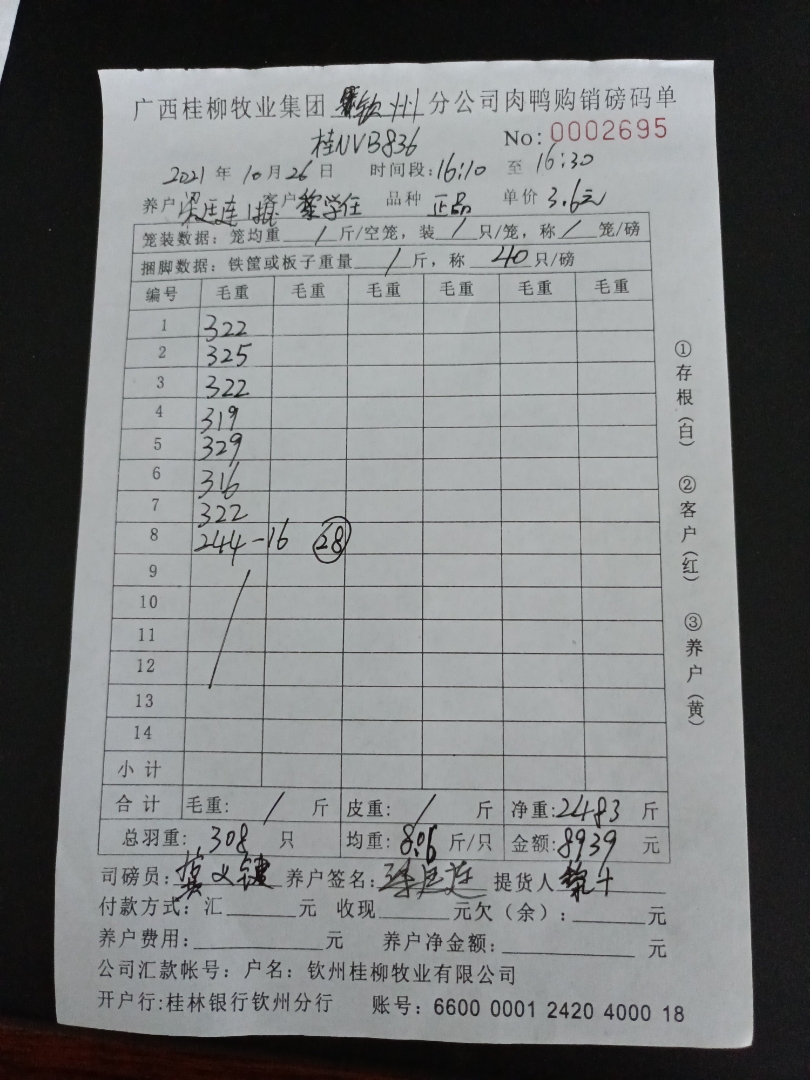 广西桂柳牧业集团 钦州 分公司肉鸭购销磅码单
桂NVB836 No: 0002695
2021 年 10 月 26 日 时间段: 16:10 至 16:30
养户 廷连 客户 黎学任 品种 正品 单价 3.6元
笼装数据: 笼均重 / 斤/空笼, 装 / 只/笼, 称 / 笼/磅
捆脚数据: 铁筐或板子重量 / 斤, 称 40 只/磅
编号 毛重 毛重 毛重 毛重 毛重 毛重
1 322
2 325
3 322
4 319
5 329
6 316
7 322
8 244-16 28
9
10
11
12
13
14
小计
合计 毛重: / 斤 皮重: / 斤 净重: 2483 斤
总羽重: 308 只 均重: 8.06 斤/只 金额: 8939 元
司磅员: 养户签名: 提货人
付款方式: 汇 元 收现 元欠(余): 元
养户费用: 元 养户净金额: 元
公司汇款帐号: 户名: 钦州桂柳牧业有限公司
开户行:桂林银行钦州分行 账号: 6600 0001 2420 4000 18
①存根(白) ②客户(红) ③养户(黄)